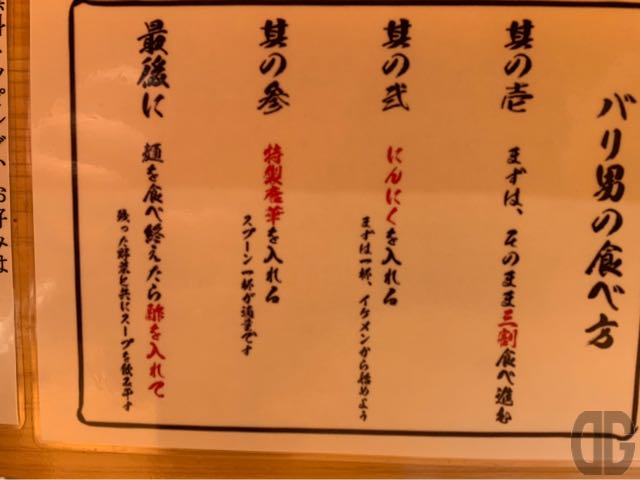 バリ男の食べ方
其の壱 まずは、そのまま三割食べ進む
其の弐 にんにくを入れる
まずは一杯、イケメンから始めよう
其の参 特製唐華を入れる
スプーン一杯が適量です
最後に 麺を食べ終えたら酢を入れて
残った野菜と共にスープを飲み干す
お好みは
DG